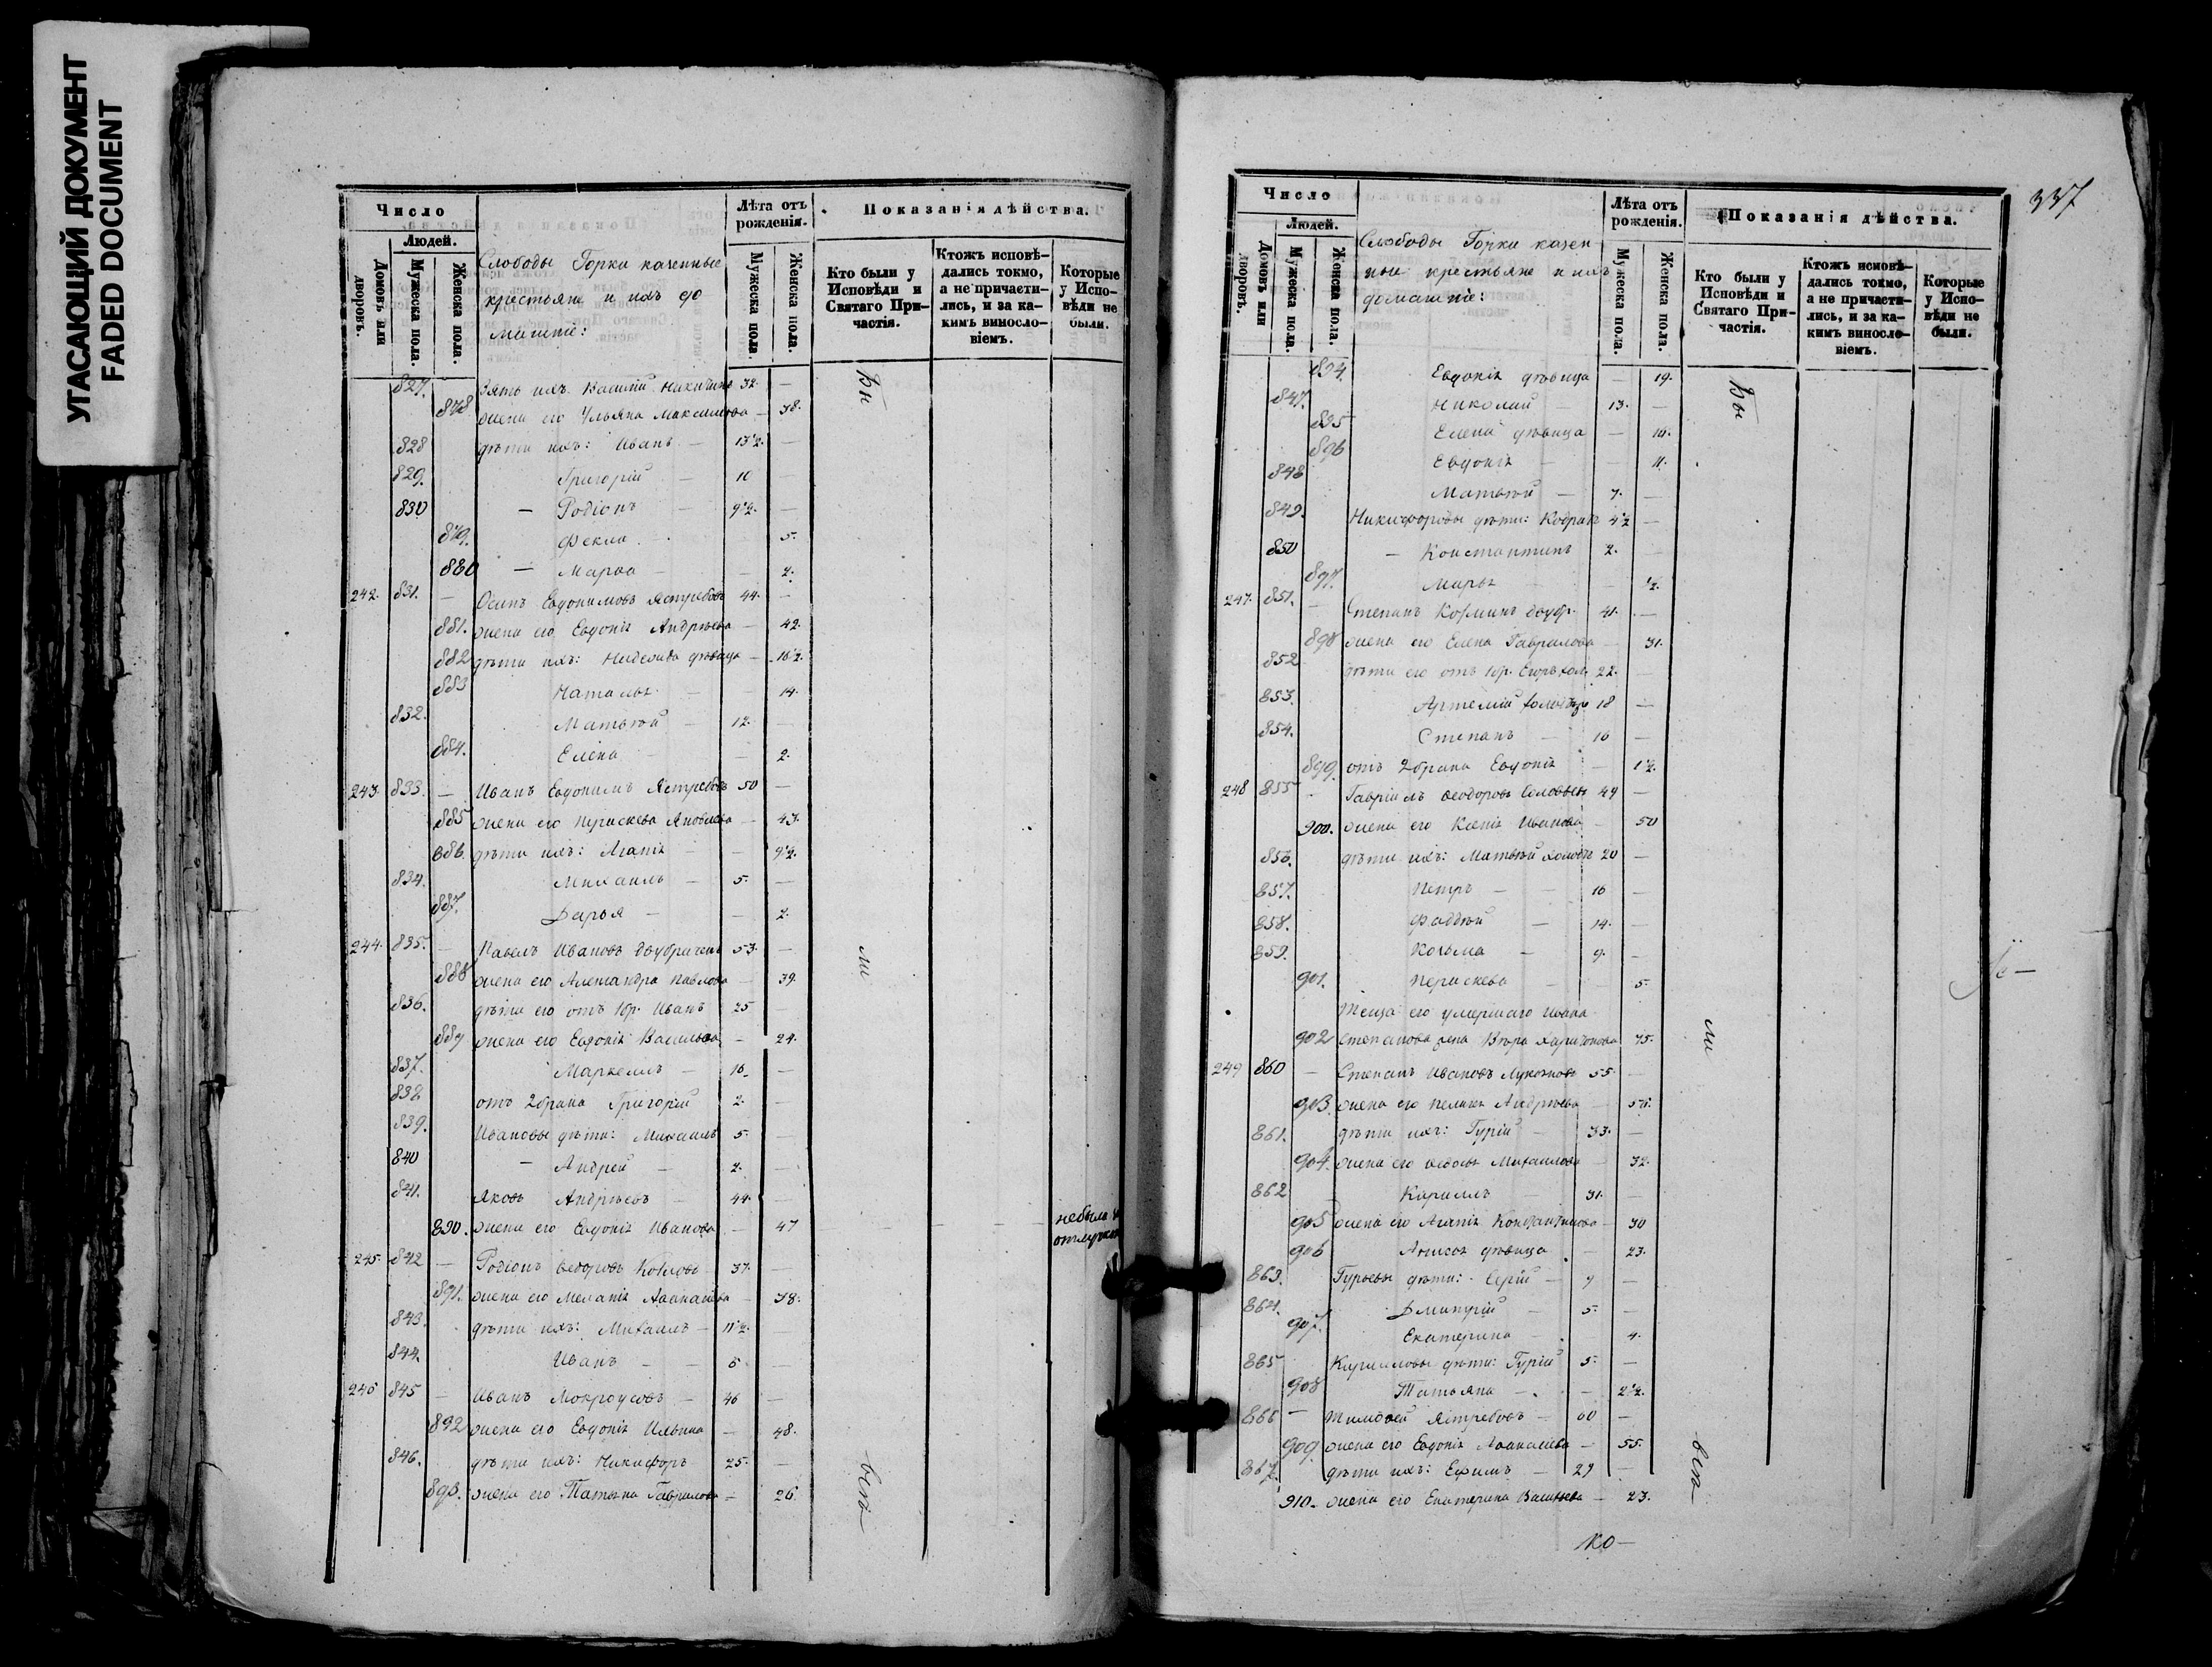 УГАСАЮЩИЙ ДОКУМЕНТ
FADED DOCUMENT
Число
Людей.
Домовъ или дворовъ.
Мужеска пола.
Женска пола.
Слободы Горки казенные
крестьяне и ихъ до
машніе:
Лѣта отъ рожденія.
Мужеска пола.
Женска пола.
Показанія дѣйства.
Кто были у Исповѣди и Святаго Причастія.
Ктожъ исповѣдались токмо, а не причастились, и за какимъ винословіемъ.
Которые у Исповѣди не были.
827. Зять ихъ Василій Никитинъ 32. —
878 жена его Ульяна Максимова — 38.
828 дѣти ихъ: Иванъ — 13½. —
829. Григорій — 10 —
830 — Родіонъ — 9½. —
879. Фекла — 5.
880 — Марѳа — — 2.
242. 831. — Осипъ Евдокимовъ Ястребовъ 44. —
881. жена его Евдокія Андрѣева — 42.
882 дѣти ихъ: дѣвица — 16½.
883 Наталья — — 14.
832. Матвѣй — 12. —
884. Елена — — 2.
243. 833. — Иванъ Евдокимъ Ястребовъ 50 —
885 жена его Параскева Яковлева — 43.
886. дѣти ихъ: Агапія — — 9½.
834. Михаилъ — 5. —
887. Дарья — — 2.
244. 835. — Павелъ Ивановъ 53. —
888 жена его Александра Павлова — 39.
836. дѣти его отъ 1бр. Иванъ 25 —
889 жена его Евдокія Васильева — 24.
837. Маркеллъ — 16. —
838 отъ 2брака Григорій 2. —
839. Ивановы дѣти: Михаилъ 5. —
840 — Андрей — 2. —
841. Яковъ Андрѣевъ — 44. —
890. жена его Евдокія Иванова — 47 — — — небыла
245. 842 — Родіонъ Ѳедоровъ Козловъ 37. —
891. жена его Меланія Аѳанасіева — 38.
843. дѣти ихъ: Михаилъ — 11½. —
844. Иванъ — — 6. —
246 845 — Иванъ Мокроусовъ — 46 —
892 жена его Евдокія Ильина — 48.
846. дѣти ихъ: Никифоръ 25. —
893. жена его Татьяна Гаврилова — 26
Бы
ли
всѣ
337
Число
Людей.
Домовъ или дворовъ.
Мужеска пола.
Женска пола.
Слободы Горки казен
ные крестьяне и ихъ
домашніе:
Лѣта отъ рожденія.
Мужеска пола.
Женска пола.
Показанія дѣйства.
Кто были у Исповѣди и Святаго Причастія.
Ктожъ исповѣдались токмо, а не причастились, и за какимъ винословіемъ.
Которые у Исповѣди не были.
894. Евдокія дѣвица — 19.
847. Николай — 13. —
895 Елена дѣвица — 16.
896 Евдокія — — 11.
848 Матвѣй — 7. —
849. Никифоровы дѣти: Кодратъ 4½ —
850 — Константинъ 2. —
897. Марья — — ½.
247. 851. — Степанъ Козминъ 41. —
898 жена его Елена Гаврилова — 31.
852 дѣти его отъ 1бр. Егоръ хол. 22. —
853. Артемій 18 —
854. Степанъ — 16 —
899. отъ 2брака Евдокія — 1½.
248 855 Гавріилъ Ѳеодоровъ Соловьевъ 49 —
900. жена его Ксенія Иванова — 50
856. дѣти ихъ: Матвѣй холостъ 20 —
857. Петръ — — 16 —
858. Фаддѣй — 14. —
859. Козьма — 9. —
901. Параскева — — 5.
Теща его умершаго Ивана
902 Степанова жена Вѣра Харитонова 75.
249 860 — Степанъ Ивановъ 55. —
903. жена его Пелагія Андрѣева —
861. дѣти ихъ: Гурій — 33. —
904. жена его Ѳедосья Михаилова — 32.
862 Кириллъ — 31. —
905 жена его Агапія Константинова — 30
906 Анисья дѣвица — 23.
863. Гурьевы дѣти: Сергій — 9 —
864. Димитрій — 5. —
907. Екатерина — — 4.
865 Кирилловы дѣти: Гурій 5. —
908 Татьяна — — 2½.
866 — Тимоѳей Ястребовъ — 60 —
909. жена его Евдокія Аѳанасіева — 55.
867. дѣти ихъ: Ефимъ — 29 —
910. жена его Екатерина Васильева — 23.
Бы
ли
всѣ